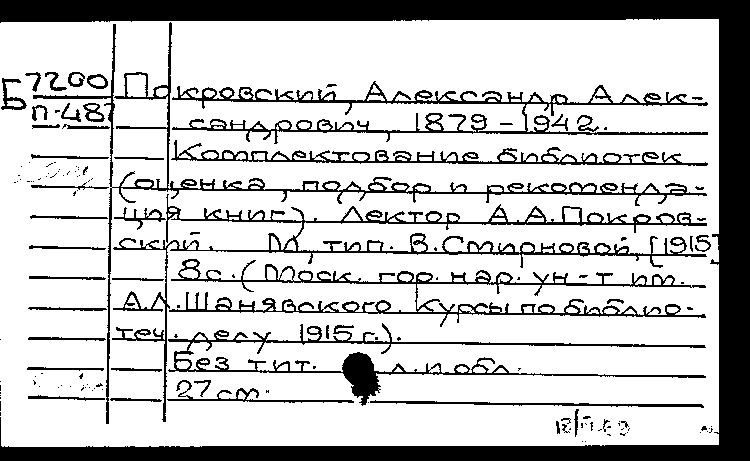 Б 7200
П-487
Покровский, Александр Алек-
сандрович, 1879-1942.
Комплектование библиотек
(оценка, подбор и рекоменда-
ция книг). Лектор А.А.Покров-
ский. М, тип. В.Смирновой, [1915]
8с. (Моск. гор. нар. ун-т им.
А.Л.Шанявского. Курсы по библио-
теч. делу 1915 г.).
Без тит. л. и обл.
27 см.